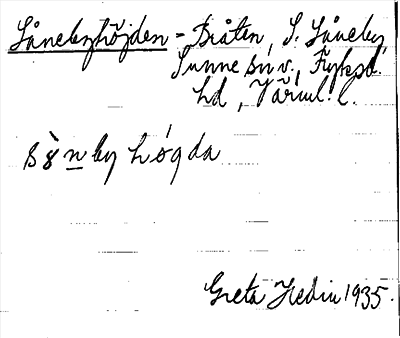 Lånebyhöjden - Bråten, S. Låneby,
Sunne sn v., Fryksd.
hd, Värml. l.
høgda
Greta Hedin 1935.